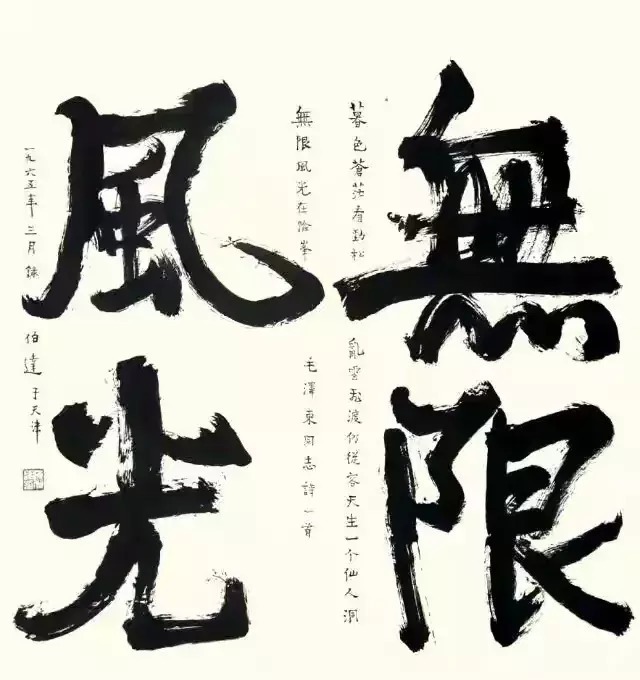 無限
風光
暮色蒼茫看勁松 亂雲飛渡仍從容天生一个仙人洞
無限風光在險峯 毛澤東同志詩一首
一九六五年三月錄 伯達于天津